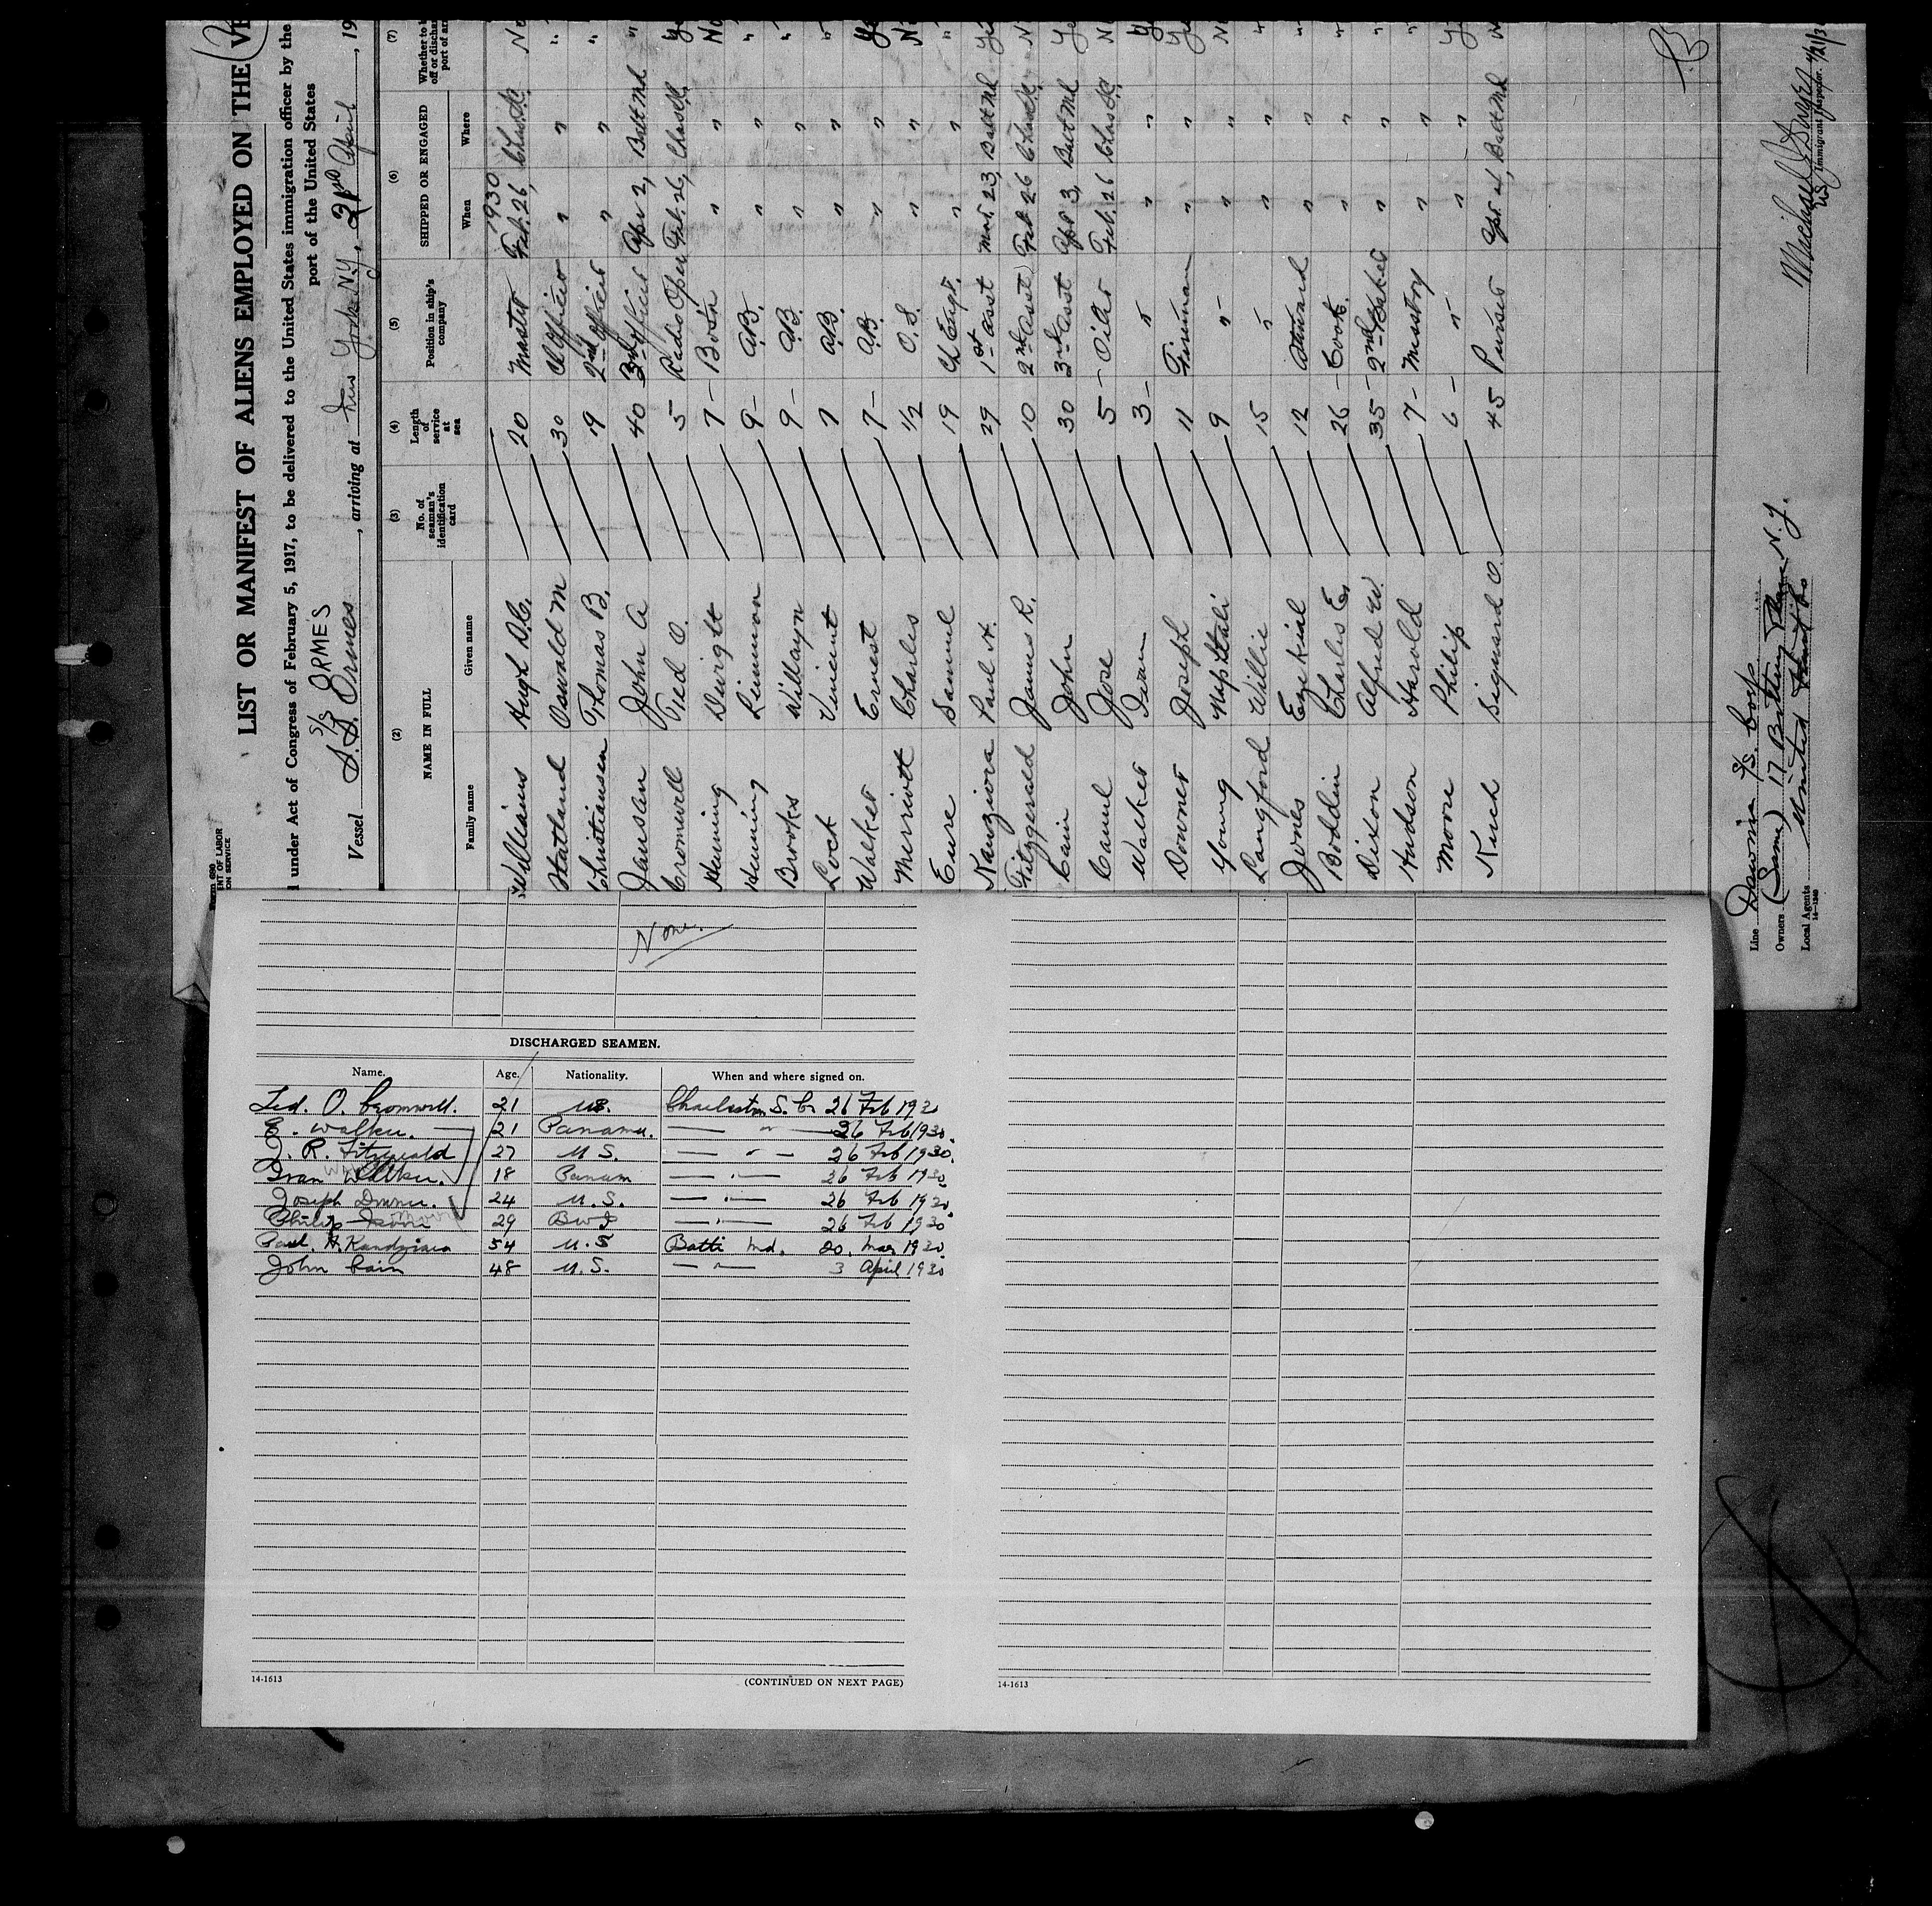 LIST OR MANIFEST OF ALIENS EMPLOYED ON THE VE
under Act of Congress of February 5, 1917, to be delivered to the United States immigration officer by the
port of the United States
S/S ORMES
Vessel S.S. Ormes, arriving at New York N.Y., 21st April, 19
(2) (3) (4) (5) (6) (7)
NAME IN FULL
Family name Given name
No. of seaman's identification card
Length of service at sea
Position in ship's company
SHIPPED OR ENGAGED
When Where
Whether to
off or dischar
port of ar
1930
Williams Hugh D.C. 20 Master Feb. 26,
Statland Oswald M 30 Ch Officer " "
Christiansen Thomas B. 19 2nd Officer " "
Jansan John A 40 3rd Officer Apr 2, Balt Md "
Cromwell Ted O. 5 Radio Oper Feb. 26,
Henning Dwight 7 - Bos'n " "
Henning Linmon 9 - A.B. " " "
Brooks Willayn 9 - A.B. " " "
Lock Vincent 7 A.B. " " "
Walker Ernest 7 - A.B. " "
Merriwitt Charles 1/2 O.S. " "
Eure Samuel 19 Ch Engr. " " "
Kanziora Paul H. 29 1st Asst Mar. 23, Balt Md
Fitzgerald James R. 10 2nd Asst Feb 26
Cain John 30 3rd Asst Apr 3, Balt Md
Camel Jose 5 - Oiler Feb. 26
Walker Ivan 3 - " " "
Downer Joseph 11 Fireman " "
Young Naphtali 9 " " "
Langford Willie 15 " " " "
Jones Ezekial 12 Steward " " "
Boddin Charles E. 26 - Cook. " " "
Dixon Alfred W. 35 - 2nd " " "
Hudson Harold 7 - Messboy " " "
Moore Philip 6 - " " "
Kuch Siguard O. 45 Purser Apr. 4, Balt Md
Line S/S Corp
Owners (Same) 17 Battery Place N.Y.
Local Agents United
14-1240
Immigrant Inspector.
None.
DISCHARGED SEAMEN.
Name. Age. Nationality. When and where signed on.
Ted. O. Cromwell. 21 US. Charleston S. C. 26 Feb 1930
E. Walker. 21 Panama. — " — 26 Feb 1930.
J. R. Fitzgerald 27 U S. — " — 26 Feb 1930.
Ivan Walker. 18 Panam — " — 26 Feb 1930
Joseph Downer. 24 U.S. — " — 26 Feb 1930
Philip Moore 29 BWI — " — 26 Feb 1930
Paul. H. Kandziora 54 U.S Balti Md. 20. Mar 1930.
John Cain 48 U.S. — " — 3 April 1930
14-1613 (CONTINUED ON NEXT PAGE)
14-1613